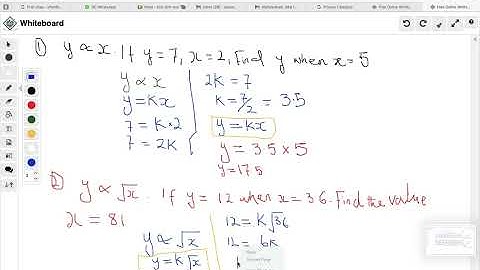 Whiteboard
1) y ∝ x. If y = 7, x = 2, Find y when x = 5
y ∝ x
y = Kx
7 = K×2
7 = 2K
2K = 7
K = 7/2 = 3.5
y = Kx
y = 3.5 × 5
y = 17.5
2) y ∝ √x. If y = 12 when x = 36. Find the value
x = 81
y ∝ √x
y = K√x
12 = K√36
12 = 6K